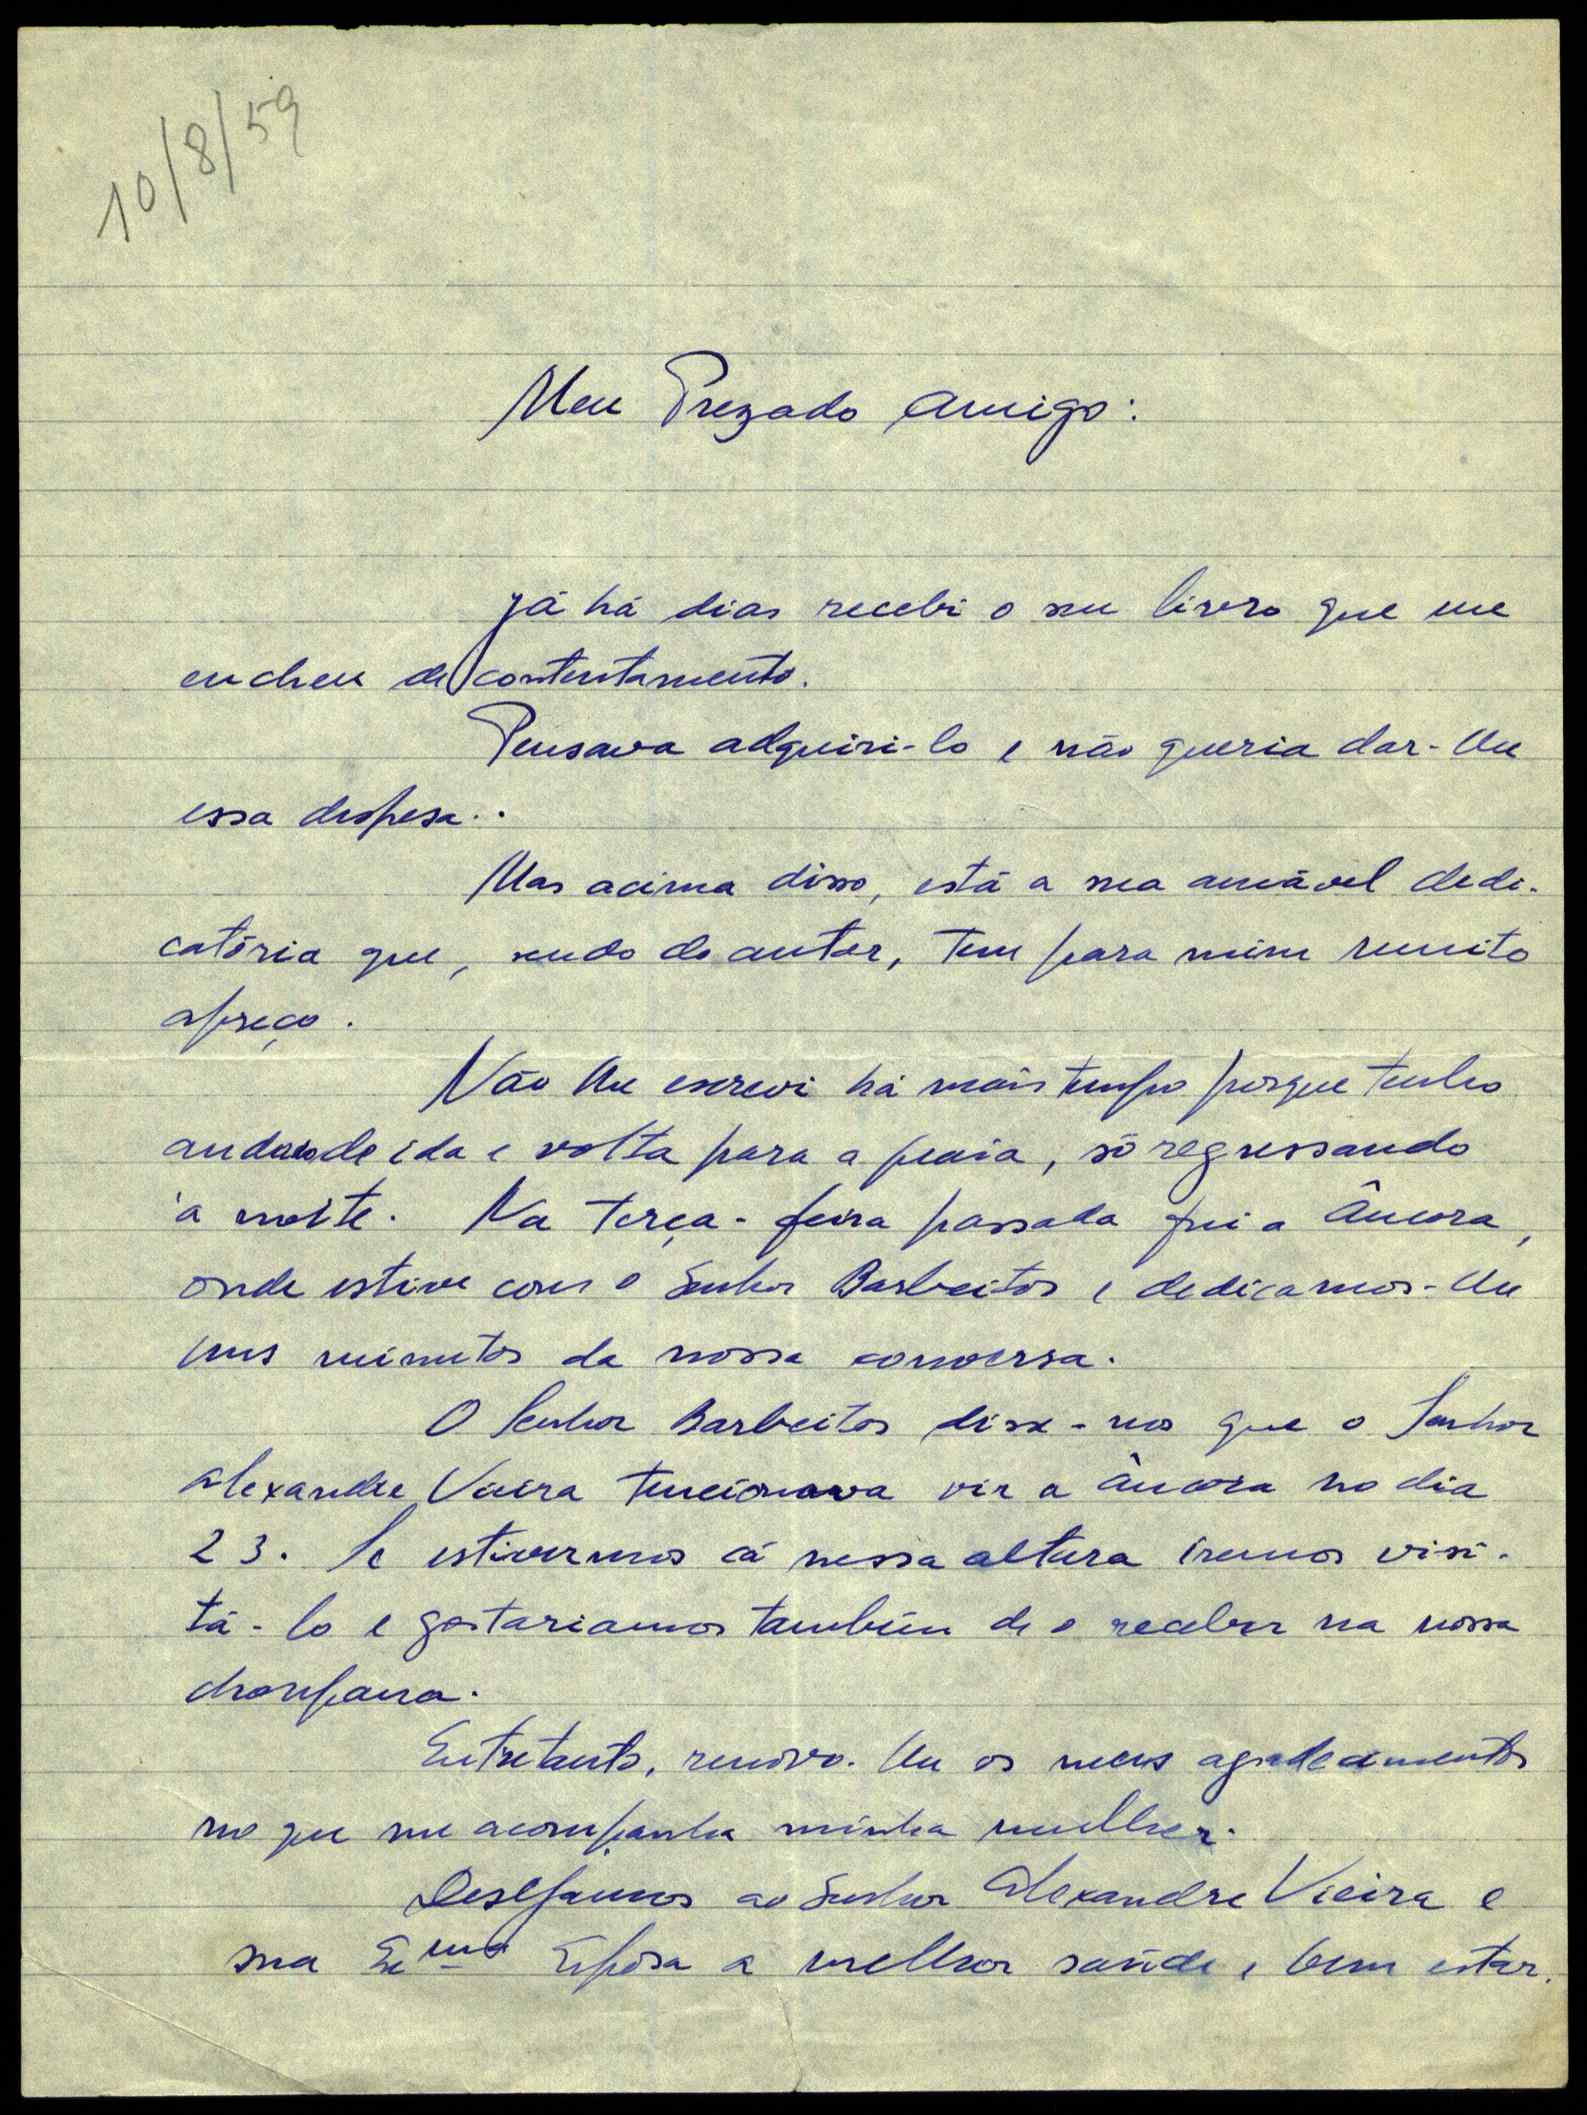 10/8/59
Meu Prezado Amigo:
Já há dias recebi o seu livro que me
encheu de contentamento.
Pensava adquiri-lo e não queria dar-lhe
essa despesa..
Mas acima disso, está a sua amável dedi-
catória que, sendo do autor, tem para mim muito
apreço.
Não lhe escrevi há mais tempo porque tenho
andado de ida e volta para a praia, só regressando
à noite. Na terça-feira passada fui a Âncora,
onde estive com o Senhor Barbeitos e dedicamos-lhe
uns minutos da nossa conversa.
O Senhor Barbeitos disse-nos que o Senhor
Alexandre Vieira tencionava vir a Âncora no dia
23. Se estivermos cá nessa altura iremos visi-
tá-lo e gostariamos também de o receber na nossa
choupana.
Entretanto, renovo-lhe os meus agradecimentos
no que me acompanha minha mulher.
Desejamos ao Senhor Alexandre Vieira e
sua Exma Esposa a melhor saúde e bem estar.